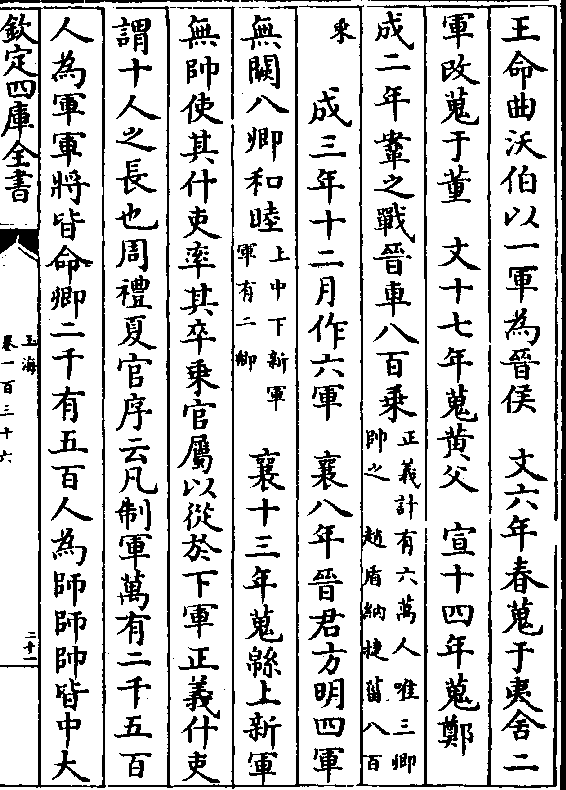 王命曲沃伯以一軍為晉侯　文六年春蒐于夷舍二
軍改蒐于董　文十七年蒐黄父　宣十四年蒐鄭
成二年鞌之戰晉車八百乗正義計有六萬人唯三卿帥之　趙盾納捷菑八百
乗
成三年十二月作六軍　襄八年晉君方明四軍
無闕八卿和睦上中下新軍軍有二卿　襄十三年蒐緜上新軍
無帥使其什吏率其卒乗官屬以從於下軍正義什吏
謂十人之長也周禮夏官序云凡制軍萬有二千五百
人為軍軍將皆命卿二千有五百人為師師帥皆中大
欽定四庫全書
玉海
卷一百三十六
二十一